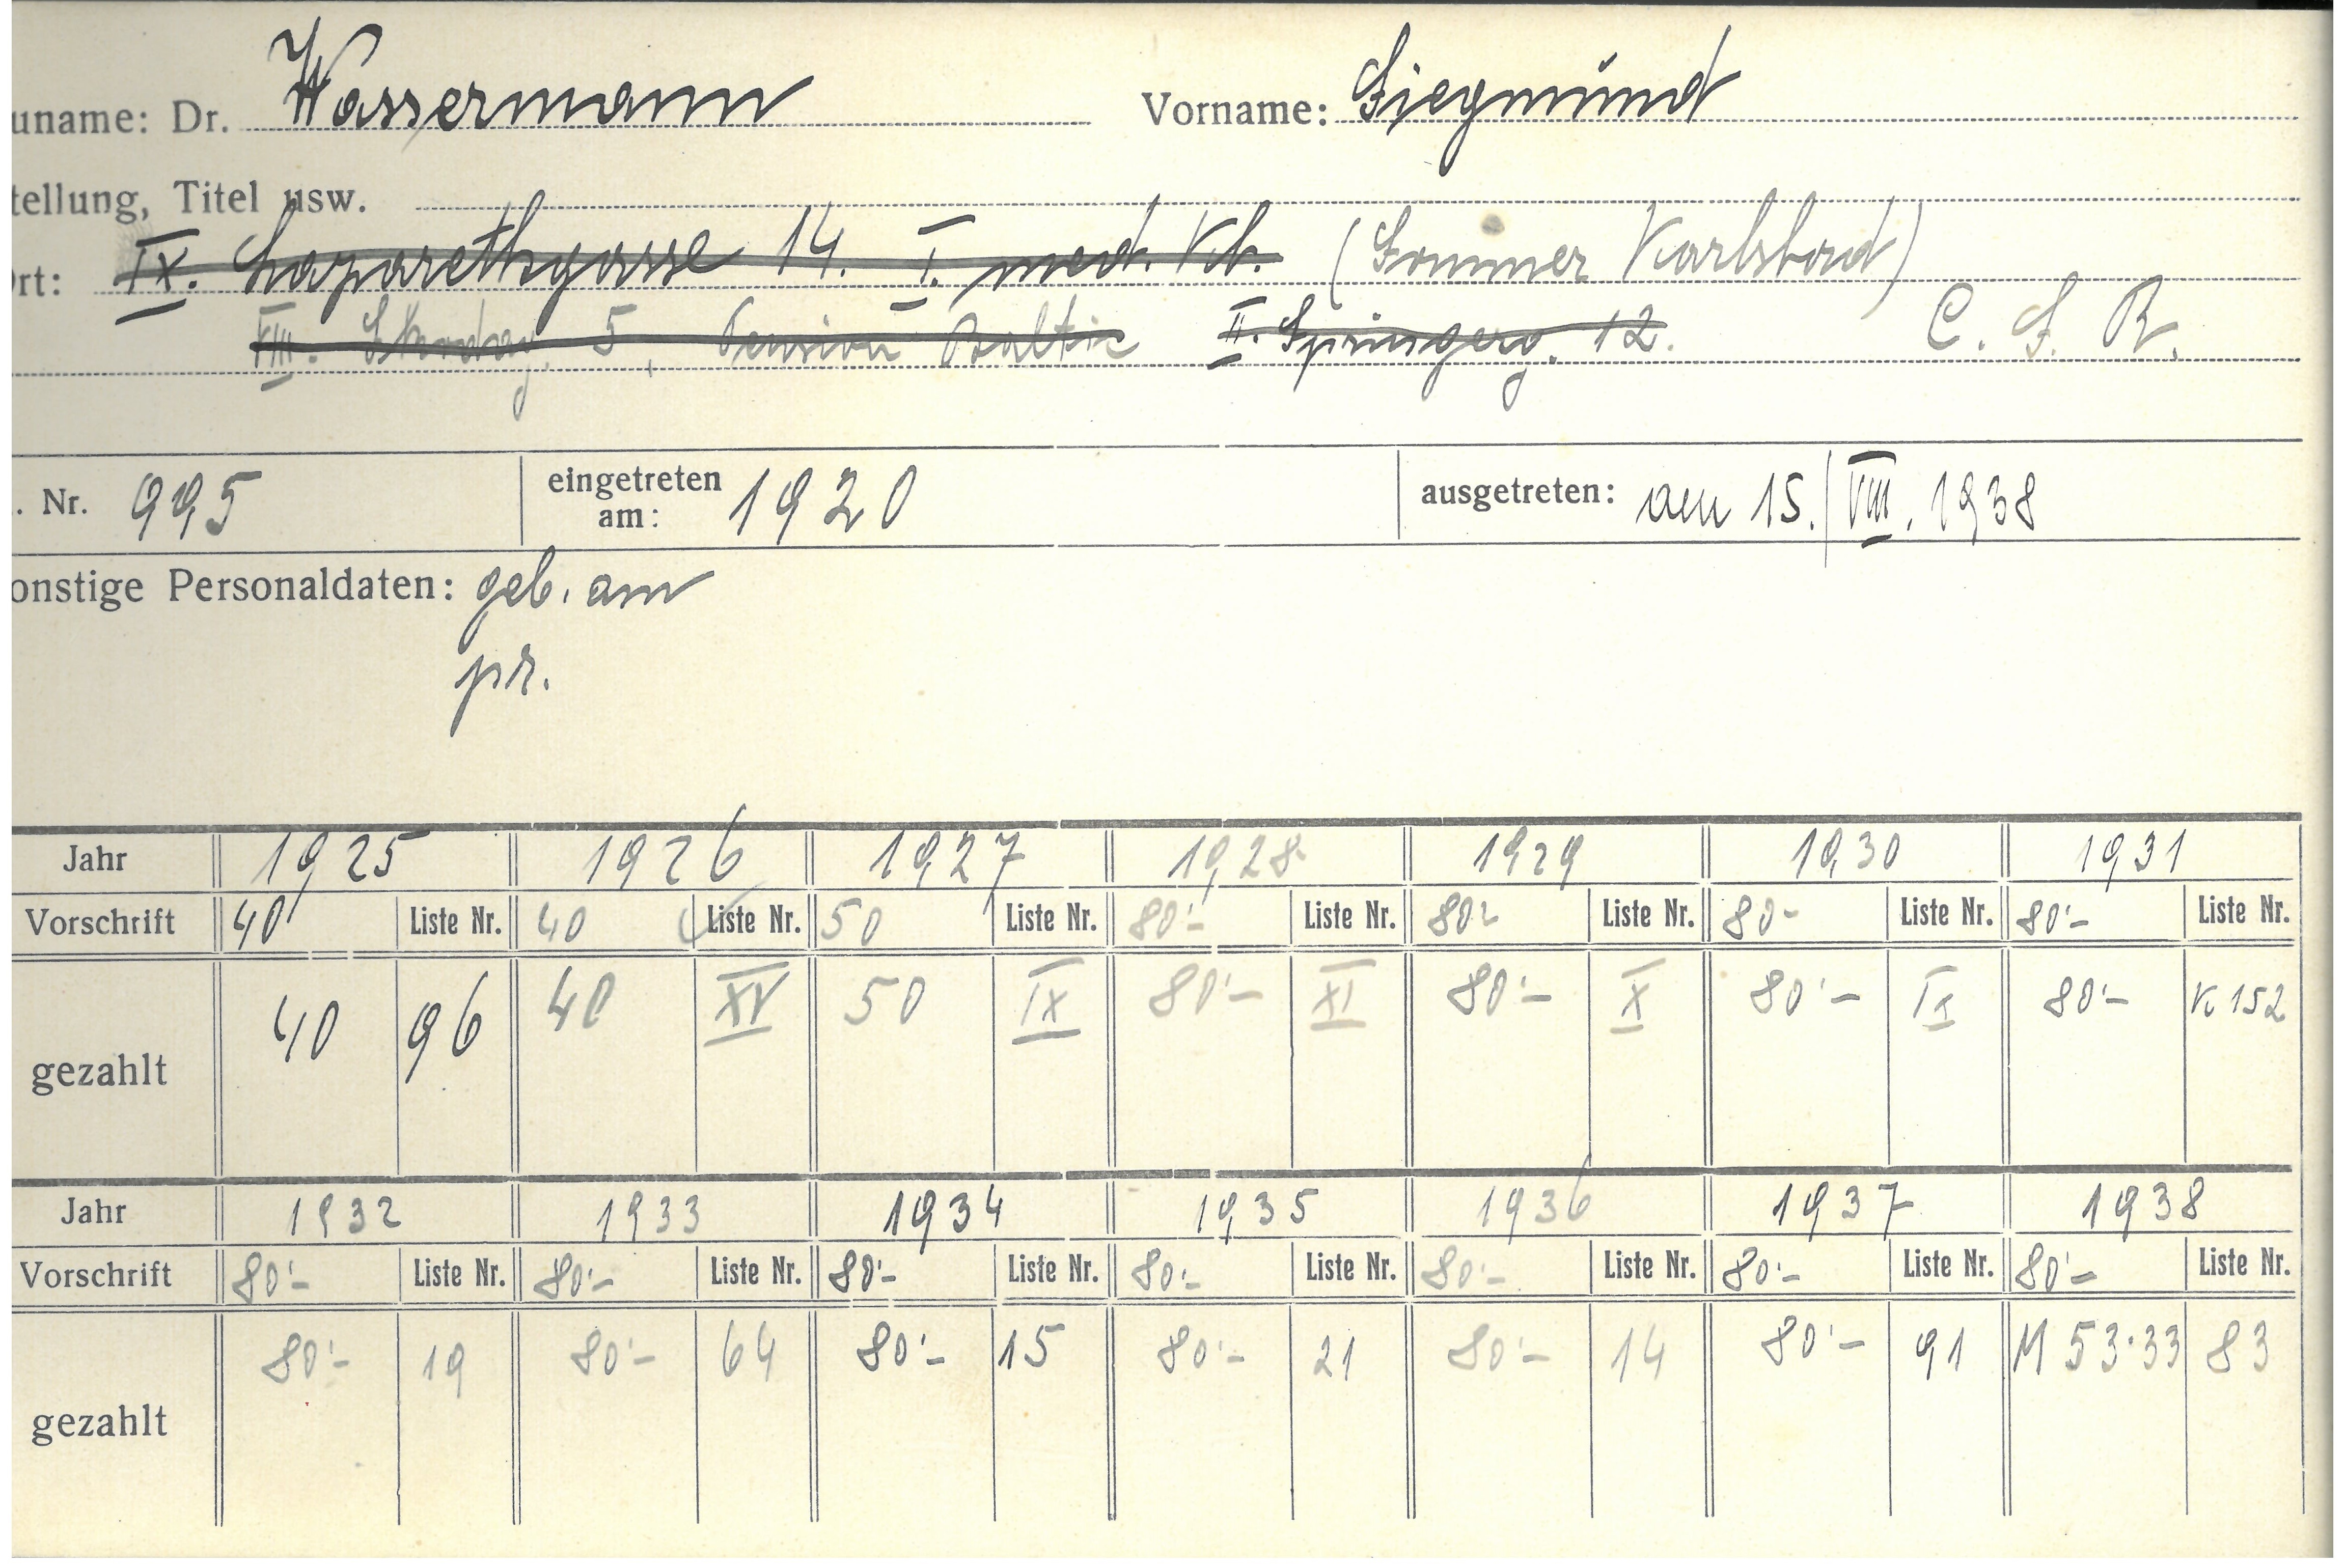 uname: Dr. Wassermann Vorname: Siegmund
tellung, Titel usw.
rt: IX. Lazarethgasse 14. I. med. Kl. (Sommer Karlsbad)
VIII. Skodag. 5, Pension Baltic II. Springerg. 12. C. S. R.
. Nr. 995 eingetreten am: 1920 ausgetreten: am 15./VIII. 1938
onstige Personaldaten: geb. am
pr.
Jahr 1925 1926 1927 1928 1929 1930 1931
Vorschrift 40 Liste Nr. 40 Liste Nr. 50 Liste Nr. 80'- Liste Nr. 80- Liste Nr. 80- Liste Nr. 80'- Liste Nr.
gezahlt 40 96 40 XV 50 IX 80'- XI 80'- X 80'- IX 80'- K 152
Jahr 1932 1933 1934 1935 1936 1937 1938
Vorschrift 80'- Liste Nr. 80'- Liste Nr. 80'- Liste Nr. 80'- Liste Nr. 80'- Liste Nr. 80'- Liste Nr. 80'- Liste Nr.
gezahlt 80'- 19 80'- 64 80'- 15 80'- 21 80'- 14 80'- 91 M 53·33 83